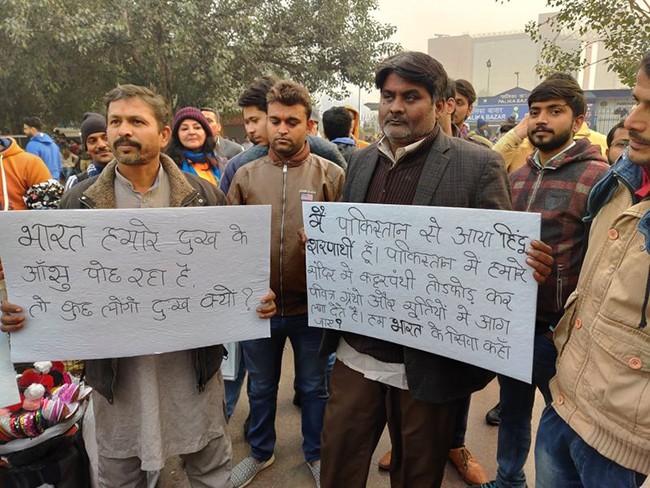 भारत हमारे दुःख के
आँसु पोछ रहा है,
तो कुछ लोगो दुःख क्यो?
मैं पाकिस्तान से आया हिंदू
शरणार्थी हूँ। पाकिस्तान मे हमारे
मंदिर मे कट्टरपंथी तोडफोड़ कर
पवित्र ग्रंथो और मूर्तियो मे आग
लगा देते है। हम भारत के सिवा कहाँ
जाए?
PALIKA BAZAR